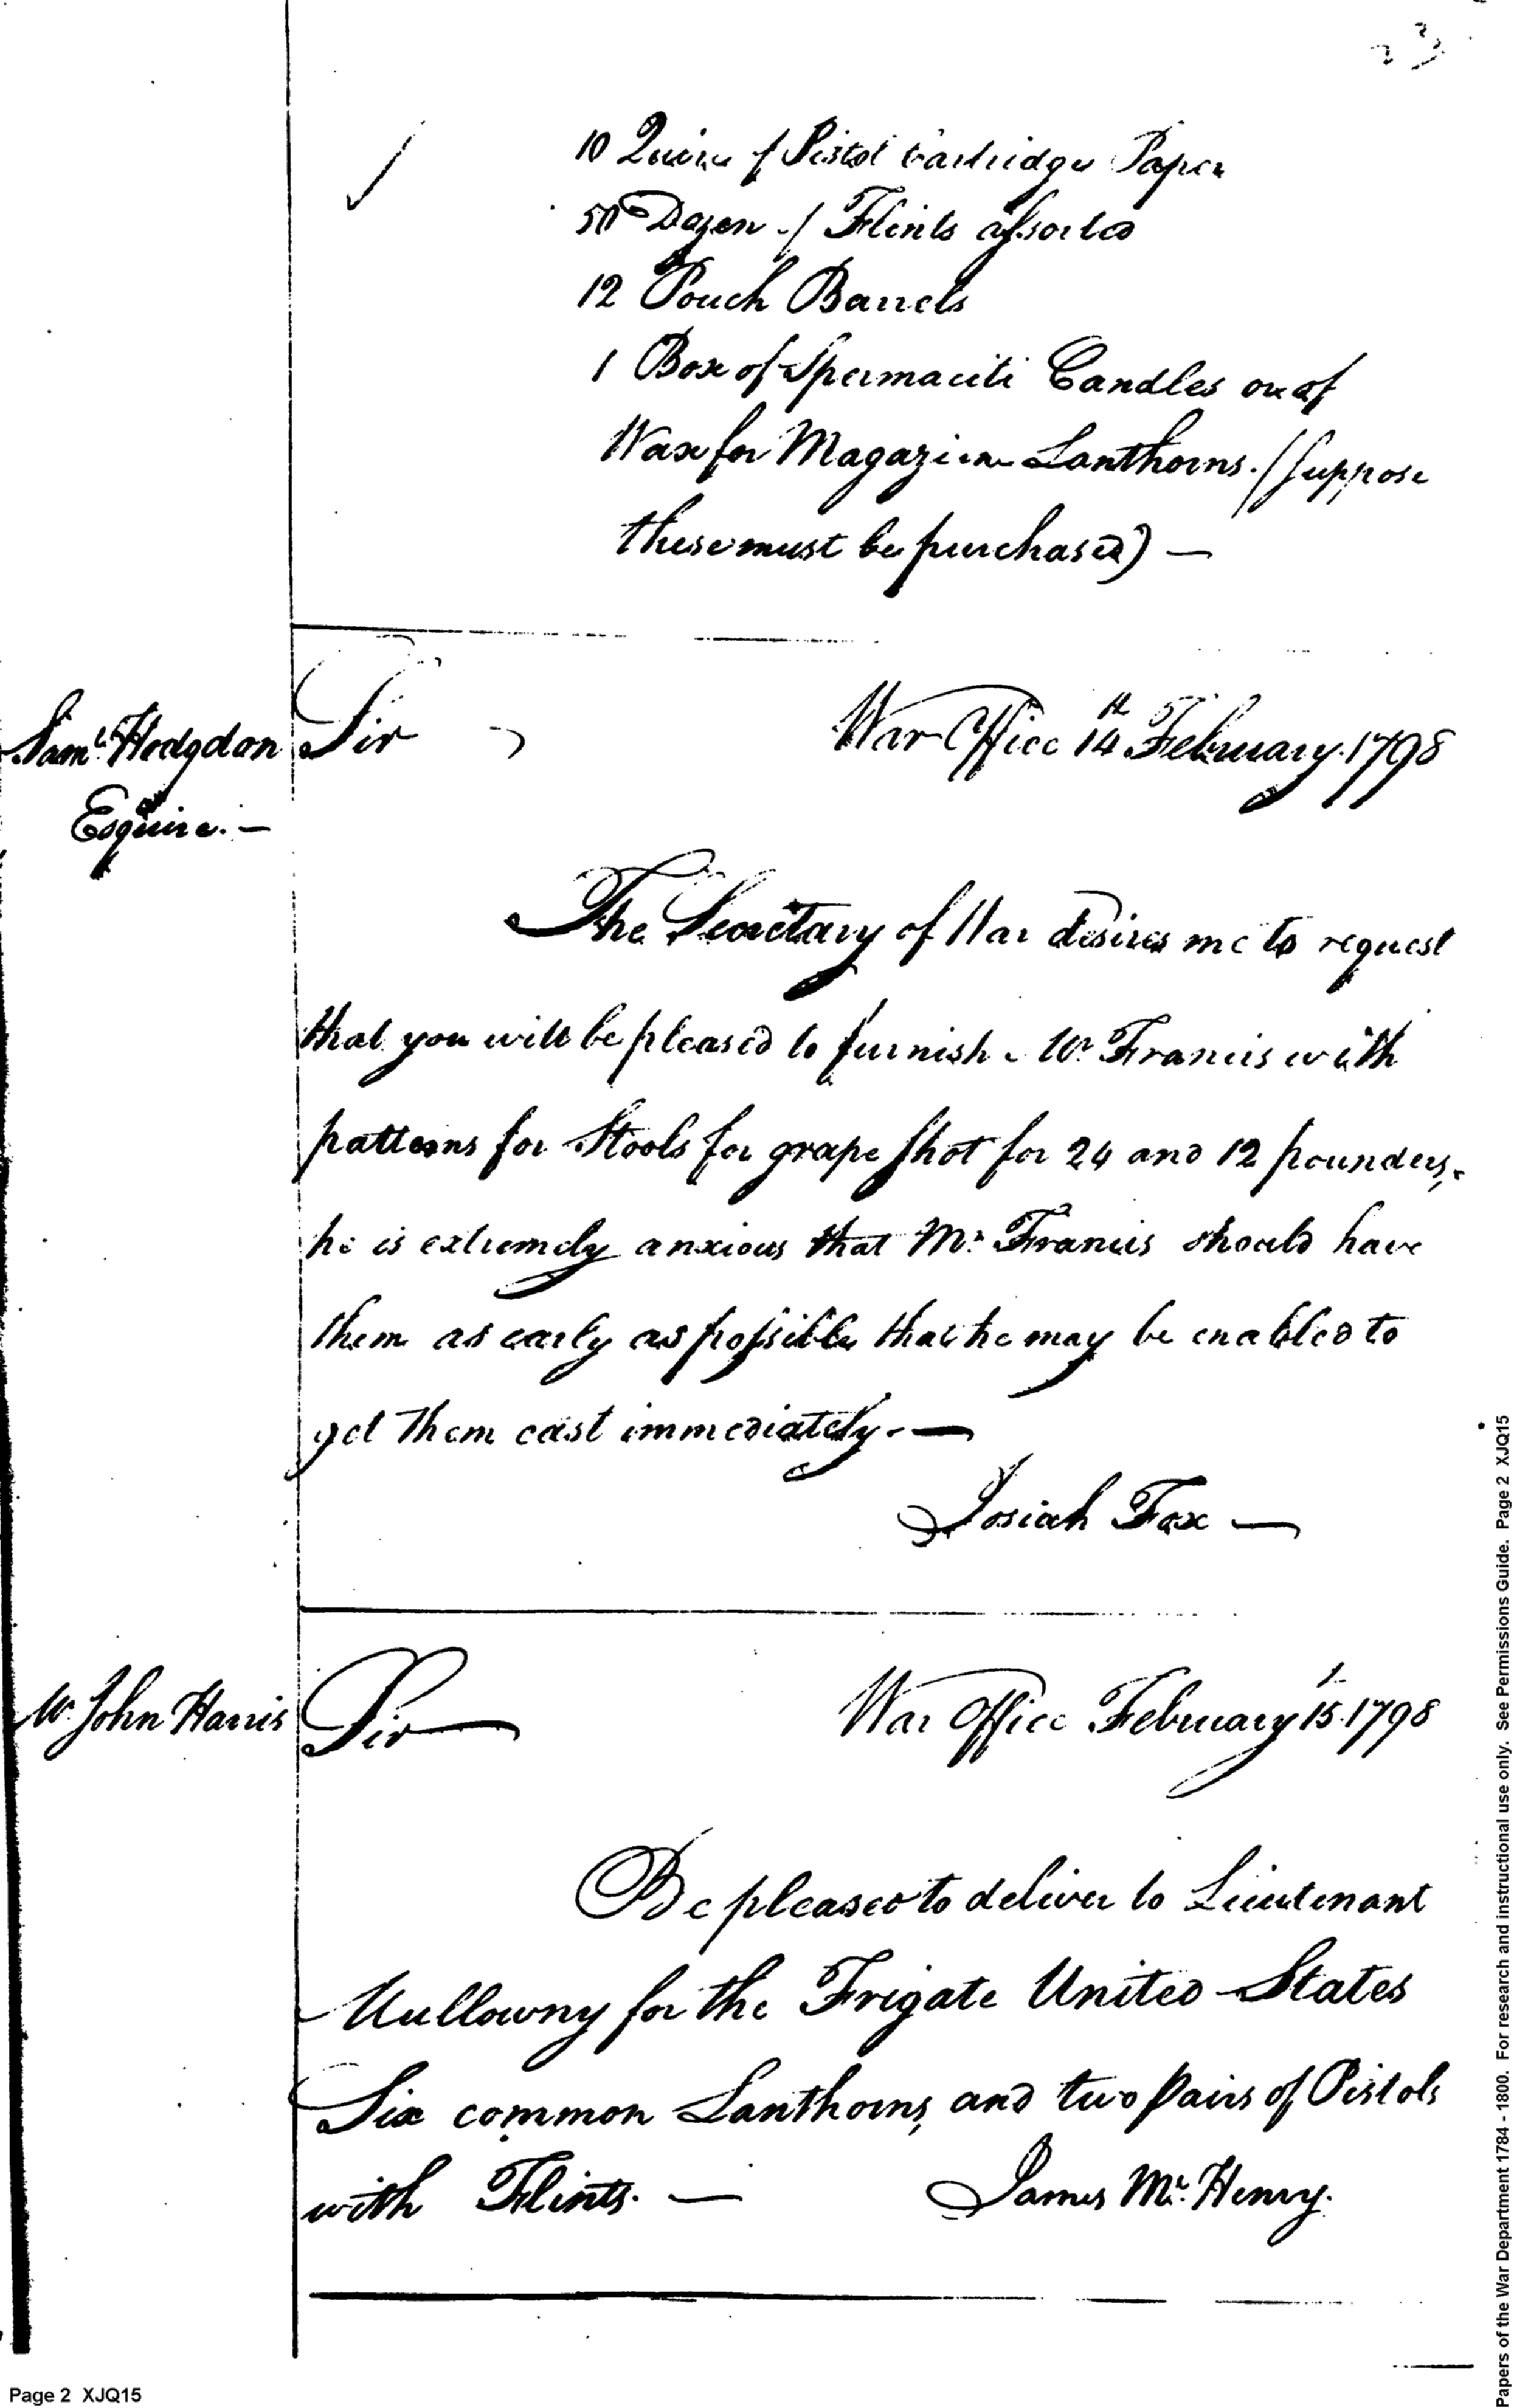 23
10 Quire of Pistol Cartridge Paper
50 Dozen of Flints assorted
12 Pouch Barrels
1 Box of Spermaciti Candles or of
Wax for Magazine Lanthorns. (Suppose
these must be purchased) —
Saml. Hodgdon
Esquire. —
Sir
War Office 14th February. 1798
The Secretary of War desires me to request
that you will be pleased to furnish Mr. Francis with
patterns for Stools for grape Shot for 24 and 12 pounders,
he is extremely anxious that Mr. Francis should have
them as early as possible that he may be enabled to
get them cast immediately. —
Josiah Fox —
Mr. John Harris
Sir
War Office February 15. 1798
Be pleased to deliver to Lieutenant
Mullowny for the Frigate United States
Six common Lanthorns, and two pairs of Pistols
with Flints. —
James McHenry.
Page 2 XJQ15
Papers of the War Department 1784 - 1800. For research and instructional use only. See Permissions Guide. Page 2 XJQ15